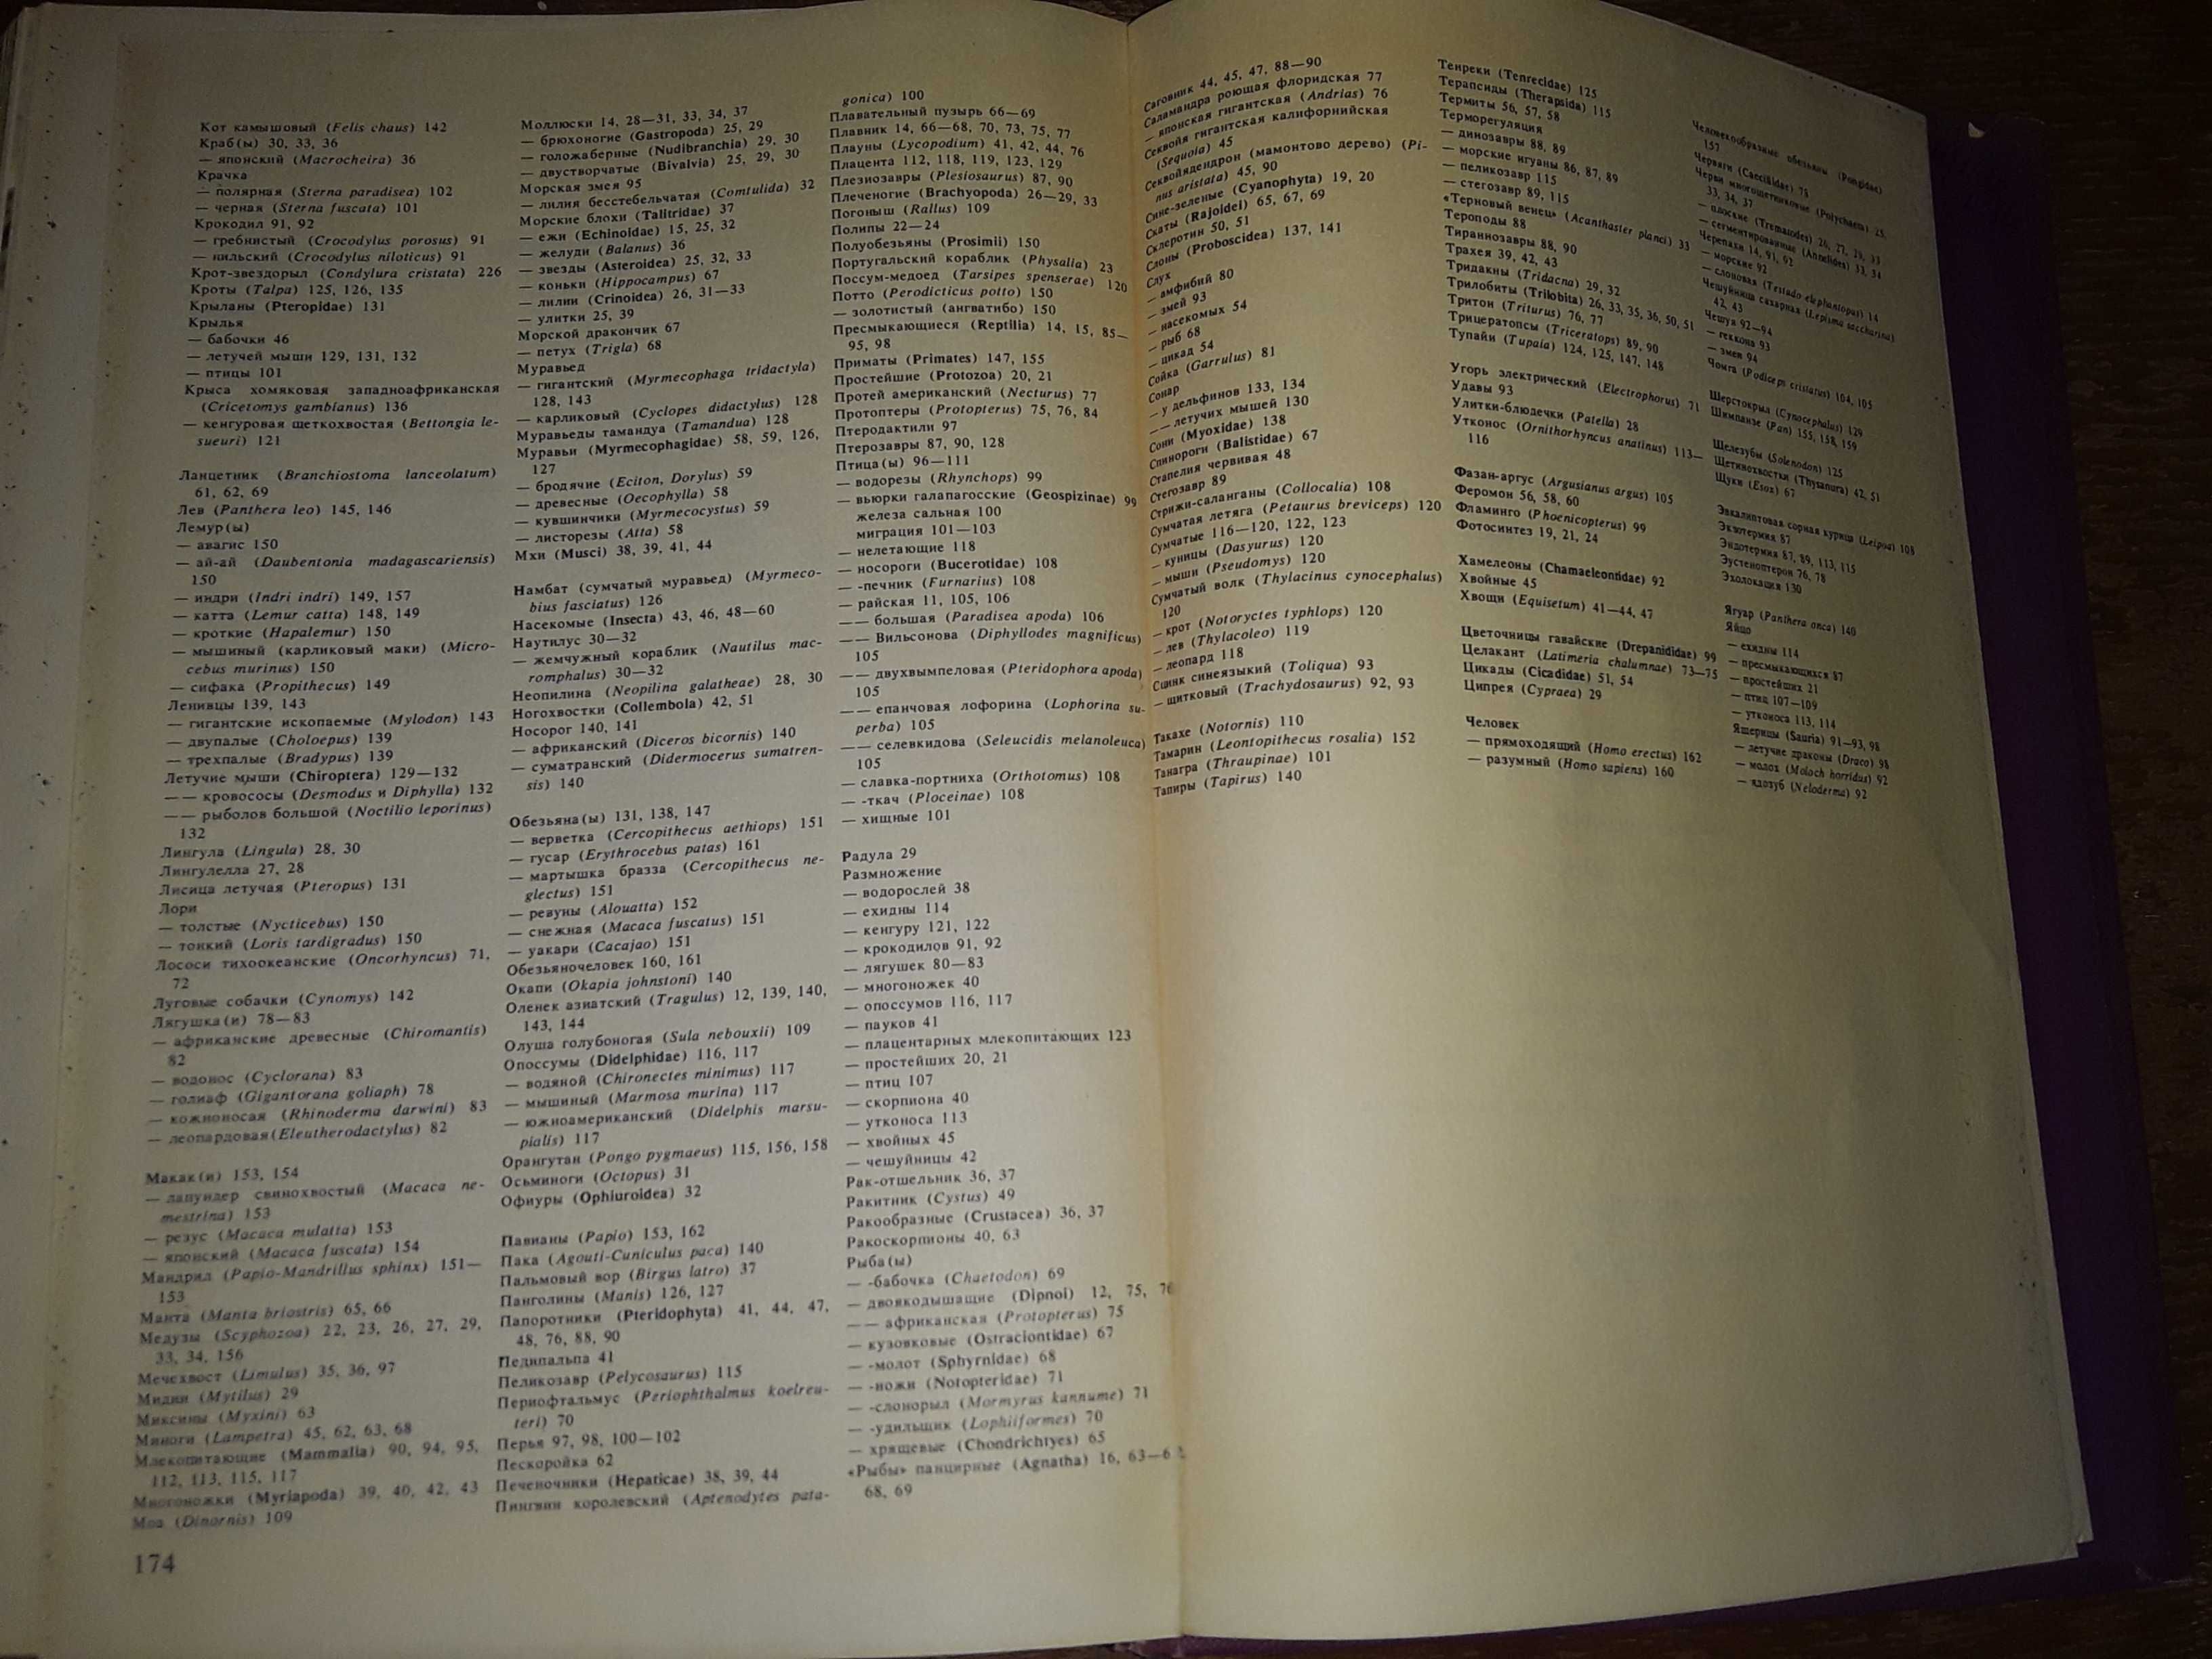 Кот камышовый (Felis chaus) 142
Краб(ы) 30, 33, 36
— японский (Macrocheira) 36
Крачка
— полярная (Sterna paradisea) 102
— черная (Sterna fuscata) 101
Крокодил 91, 92
— гребнистый (Crocodylus porosus) 91
— нильский (Crocodylus niloticus) 91
Крот-звездорыл (Condylura cristata) 226
Кроты (Talpa) 125, 126, 135
Крыланы (Pteropidae) 131
Крылья
— бабочки 46
— летучей мыши 129, 131, 132
— птицы 101
Крыса хомяковая западноафриканская
(Cricetomys gambianus) 136
— кенгуровая щеткохвостая (Bettongia le-
sueuri) 121
Ланцетник (Branchiostoma lanceolatum)
61, 62, 69
Лев (Panthera leo) 145, 146
Лемур(ы)
— авагис 150
— ай-ай (Daubentonia madagascariensis)
150
— индри (Indri indri) 149, 157
— катта (Lemur catta) 148, 149
— кроткие (Hapalemur) 150
— мышиный (карликовый маки) (Micro-
cebus murinus) 150
— сифака (Propithecus) 149
Ленивцы 139, 143
— гигантские ископаемые (Mylodon) 143
— двупалые (Choloepus) 139
— трехпалые (Bradypus) 139
Летучие мыши (Chiroptera) 129—132
—— кровососы (Desmodus и Diphylla) 132
—— рыболов большой (Noctilio leporinus)
132
Лингула (Lingula) 28, 30
Лингулелла 27, 28
Лисица летучая (Pteropus) 131
Лори
— толстые (Nycticebus) 150
— тонкий (Loris tardigradus) 150
Лососи тихоокеанские (Oncorhyncus) 71,
72
Луговые собачки (Cynomys) 142
Лягушка(и) 78—83
— африканские древесные (Chiromantis)
82
— водонос (Cyclorana) 83
— голиаф (Gigantorana goliaph) 78
— кожноносая (Rhinoderma darwini) 83
— леопардовая(Eleutherodactylus) 82
Макак(и) 153, 154
— лапундер свинохвостый (Macaca ne-
mestrina) 153
— резус (Macaca mulatta) 153
— японский (Macaca fuscata) 154
Мандрил (Papio-Mandrillus sphinx) 151—
153
Манта (Manta briostris) 65, 66
Медузы (Scyphozoa) 22, 23, 26, 27, 29,
33, 34, 156
Мечехвост (Limulus) 35, 36, 97
Мидии (Mytilus) 29
Миксины (Myxini) 63
Миноги (Lampetra) 45, 62, 63, 68
Млекопитающие (Mammalia) 90, 94, 95,
112, 113, 115, 117
Многоножки (Myriapoda) 39, 40, 42, 43
Моа (Dinornis) 109
174
Моллюски 14, 28—31, 33, 34, 37
— брюхоногие (Gastropoda) 25, 29
— голожаберные (Nudibranchia) 29, 30
— двустворчатые (Bivalvia) 25, 29, 30
Морская змея 95
— лилия бесстебельчатая (Comtulida) 32
Морские блохи (Talitridae) 37
— ежи (Echinoidae) 15, 25, 32
— желуди (Balanus) 36
— звезды (Asteroidea) 25, 32, 33
— коньки (Hippocampus) 67
— лилии (Crinoidea) 26, 31—33
— улитки 25, 39
Морской дракончик 67
— петух (Trigla) 68
Муравьед
— гигантский (Myrmecophaga tridactyla)
128, 143
— карликовый (Cyclopes didactylus) 128
Муравьеды тамандуа (Tamandua) 128
Муравьи (Myrmecophagidae) 58, 59, 126,
127
— бродячие (Eciton, Dorylus) 59
— древесные (Oecophylla) 58
— кувшинчики (Myrmecocystus) 59
— листорезы (Atta) 58
Мхи (Musci) 38, 39, 41, 44
Намбат (сумчатый муравьед) (Myrmeco-
bius fasciatus) 126
Насекомые (Insecta) 43, 46, 48—60
Наутилус 30—32
— жемчужный кораблик (Nautilus mac-
romphalus) 30—32
Неопилина (Neopilina galatheae) 28, 30
Ногохвостки (Collembola) 42, 51
Носорог 140, 141
— африканский (Diceros bicornis) 140
— суматранский (Didermocerus sumatren-
sis) 140
Обезьяна(ы) 131, 138, 147
— верветка (Cercopithecus aethiops) 151
— гусар (Erythrocebus patas) 161
— мартышка бразза (Cercopithecus ne-
glectus) 151
— ревуны (Alouatta) 152
— снежная (Macaca fuscatus) 151
— уакари (Cacajao) 151
Обезьяночеловек 160, 161
Окапи (Okapia johnstoni) 140
Оленек азиатский (Tragulus) 12, 139, 140,
143, 144
Олуша голубоногая (Sula nebouxii) 109
Опоссумы (Didelphidae) 116, 117
— водяной (Chironectes minimus) 117
— мышиный (Marmosa murina) 117
— южноамериканский (Didelphis marsu-
pialis) 117
Орангутан (Pongo pygmaeus) 115, 156, 158
Осьминоги (Octopus) 31
Офиуры (Ophiuroidea) 32
Павианы (Papio) 153, 162
Пака (Agouti-Cuniculus paca) 140
Пальмовый вор (Birgus latro) 37
Панголины (Manis) 126, 127
Папоротники (Pteridophyta) 41, 44, 47,
48, 76, 88, 90
Педипальпа 41
Пеликозавр (Pelycosaurus) 115
Периофтальмус (Periophthalmus koelreu-
teri) 70
Перья 97, 98, 100—102
Пескоройка 62
Печеночники (Hepaticae) 38, 39, 44
Пингвин королевский (Aptenodytes pata-
gonica) 100
Плавательный пузырь 66—69
Плавник 14, 66—68, 70, 73, 75, 77
Плауны (Lycopodium) 41, 42, 44, 76
Плацента 112, 118, 119, 123, 129
Плезиозавры (Plesiosaurus) 87, 90
Плеченогие (Brachyopoda) 26—29, 33
Погоныш (Rallus) 109
Полипы 22—24
Полуобезьяны (Prosimii) 150
Португальский кораблик (Physalla) 23
Поссум-медоед (Tarsipes spenserae) 120
Потто (Perodicticus potto) 150
— золотистый (ангватибо) 150
Пресмыкающиеся (Reptilia) 14, 15, 85—
95, 98
Приматы (Primates) 147, 155
Простейшие (Protozoa) 20, 21
Протей американский (Necturus) 77
Протоптеры (Protopterus) 75, 76, 84
Птеродактили 97
Птерозавры 87, 90, 128
Птица(ы) 96—111
— водорезы (Rhynchops) 99
— вьюрки галапагосские (Geospizinae) 99
железа сальная 100
миграция 101—103
— нелетающие 118
— носороги (Bucerotidae) 108
— -печник (Furnarius) 108
— райская 11, 105, 106
—— большая (Paradisea apoda) 106
—— Вильсонова (Diphyllodes magnificus)
105
—— двухвымпеловая (Pteridophora apoda)
105
—— епанчовая лофорина (Lophorina su-
perba) 105
—— селевкидова (Seleucidis melanoleuca)
105
— славка-портниха (Orthotomus) 108
— -ткач (Ploceinae) 108
— хищные 101
Радула 29
Размножение
— водорослей 38
— ехидны 114
— кенгуру 121, 122
— крокодилов 91, 92
— лягушек 80—83
— многоножек 40
— опоссумов 116, 117
— пауков 41
— плацентарных млекопитающих 123
— простейших 20, 21
— птиц 107
— скорпиона 40
— утконоса 113
— хвойных 45
— чешуйницы 42
Рак-отшельник 36, 37
Ракитник (Cystus) 49
Ракообразные (Crustacea) 36, 37
Ракоскорпионы 40, 63
Рыба(ы)
— -бабочка (Chaetodon) 69
— двоякодышащие (Dipnoi) 12, 75, 76
—— африканская (Protopterus) 75
— кузовковые (Ostraciontidae) 67
— -молот (Sphyrnidae) 68
— -ножи (Notopteridae) 71
— -слонорыл (Mormyrus kannume) 71
— -удильщик (Lophiiformes) 70
— хрящевые (Chondrichtyes) 65
«Рыбы» панцирные (Agnatha) 16, 63—6
68, 69
Саговник 44, 45, 47, 88—90
Саламандра роющая флоридская 77
— японская гигантская (Andrias) 76
Секвойя гигантская калифорнийская
(Sequoia) 45
Секвойядендрон (мамонтово дерево) (Pi-
nus aristata) 45, 90
Сине-зеленые (Cyanophyta) 19, 20
Скаты (Rajoidei) 65, 67, 69
Склеротин 50, 51
Слоны (Proboscidea) 137, 141
Слух
— амфибий 80
— змей 93
— насекомых 54
— рыб 68
— цикад 54
Сойка (Garrulus) 81
Сонар
— у дельфинов 133, 134
—— летучих мышей 130
Сони (Myoxidae) 138
Спинороги (Balistidae) 67
Стапелия червивая 48
Стегозавр 89
Стрижи-саланганы (Collocalia) 108
Сумчатая летяга (Petaurus breviceps) 120
Сумчатые 116—120, 122, 123
— куницы (Dasyurus) 120
— мыши (Pseudomys) 120
Сумчатый волк (Thylacinus cynocephalus)
120
— крот (Notoryctes typhlops) 120
— лев (Thylacoleo) 119
— леопард 118
Сцинк синеязыкий (Toliqua) 93
— щитковый (Trachydosaurus) 92, 93
Такахе (Notornis) 110
Тамарин (Leontopithecus rosalia) 152
Танагра (Thraupinae) 101
Тапиры (Tapirus) 140
Тенреки (Tenrecidae) 125
Терапсиды (Therapsida) 115
Термиты 56, 57, 58
Терморегуляция
— динозавры 88, 89
— морские игуаны 86, 87, 89
— пеликозавр 115
— стегозавр 89, 115
«Терновый венец» (Acanthaster planci) 33
Тероподы 88
Тираннозавры 88, 90
Трахея 39, 42, 43
Тридакны (Tridacna) 29, 32
Трилобиты (Trilobita) 26, 33, 35, 36, 50, 51
Тритон (Triturus) 76, 77
Трицератопсы (Triceratops) 89, 90
Тупайи (Tupaia) 124, 125, 147, 148
Угорь электрический (Electrophorus) 71
Удавы 93
Улитки-блюдечки (Patella) 28
Утконос (Ornithorhyncus anatinus) 113—
116
Фазан-аргус (Argusianus argus) 105
Феромон 56, 58, 60
Фламинго (Phoenicopterus) 99
Фотосинтез 19, 21, 24
Хамелеоны (Chamaeleontidae) 92
Хвойные 45
Хвощи (Equisetum) 41—44, 47
Цветочницы гавайские (Drepanididae) 99
Целакант (Latimeria chalumnae) 73—75
Цикады (Cicadidae) 51, 54
Ципрея (Cypraea) 29
Человек
— прямоходящий (Homo erectus) 162
— разумный (Homo sapiens) 160
Человекообразные обезьяны (Pongidae)
157
Червяги (Caeciliidae) 78
Черви многощетинковые (Polychaeta) 25,
33, 34, 37
— плоские (Trematodes) 26, 27, 29, 33
— сегментированные (Annelides) 33, 34
Черепахи 14, 91, 92
— морские 92
— слоновая (Testudo elephantopus) 14
Чешуйница сахарная (Lepisma saccharina)
42, 43
Чешуя 92—94
— геккона 93
— змеи 94
Чомга (Podiceps cristatus) 104, 105
Шерстокрыл (Cynocephalus) 129
Шимпанзе (Pan) 155, 158, 159
Щелезубы (Solenodon) 125
Щетинохвостки (Thysanura) 42, 51
Щуки (Esox) 67
Эвкалиптовая сорная курица (Leipoa) 108
Экзотермия 87
Эндотермия 87, 89, 113, 115
Эустеноптерон 76, 78
Эхолокация 130
Ягуар (Panthera onca) 140
Яйцо
— ехидны 114
— пресмыкающихся 87
— простейших 21
— птиц 107—109
— утконоса 113, 114
Ящерицы (Sauria) 91—93, 98
— летучие драконы (Draco) 98
— молох (Moloch horridus) 92
— ядозуб (Heloderma) 92